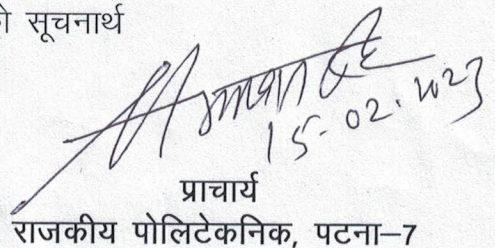 ो सूचनार्थ
15-02.2023
प्राचार्य
राजकीय पोलिटेकनिक, पटना–7